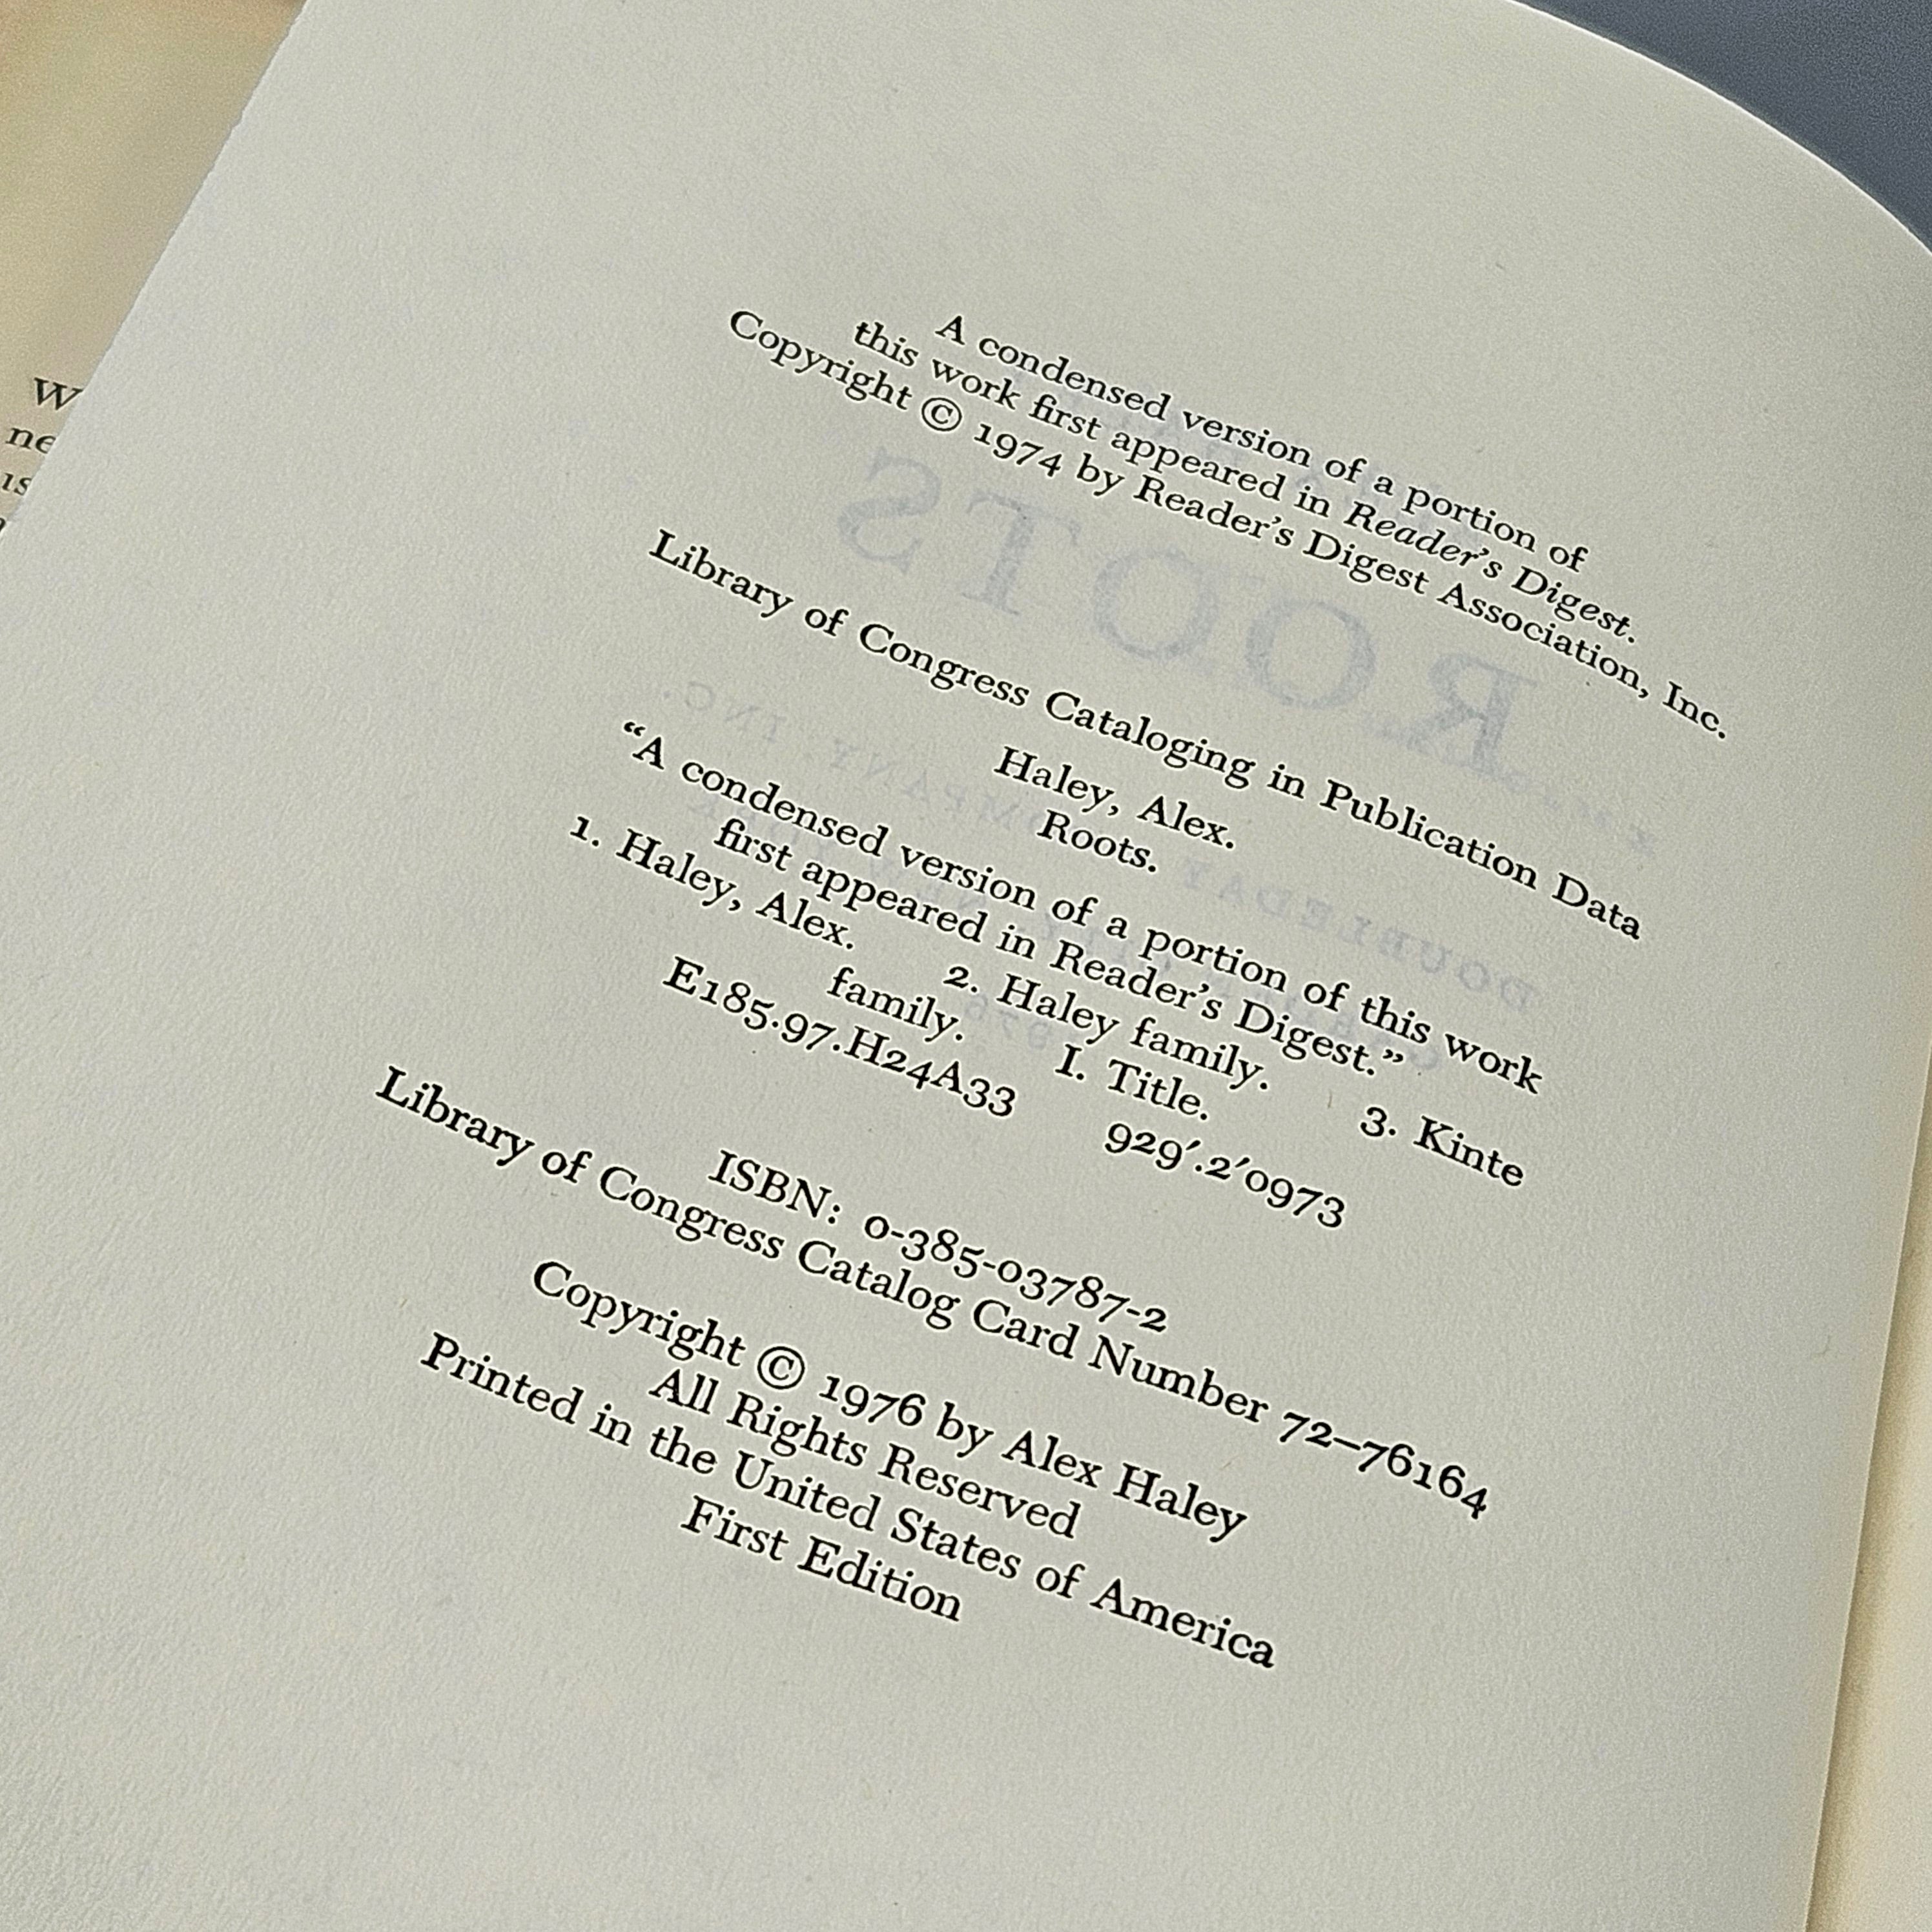 A condensed version of a portion of
this work first appeared in Reader's Digest.
Copyright © 1974 by Reader's Digest Association, Inc.
Library of Congress Cataloging in Publication Data
Haley, Alex.
Roots.
“A condensed version of a portion of this work
first appeared in Reader's Digest.”
1. Haley, Alex. 2. Haley family. 3. Kinte
family. I. Title.
E185.97.H24A33 929'.2'0973
ISBN: 0-385-03787-2
Library of Congress Catalog Card Number 72–76164
Copyright © 1976 by Alex Haley
All Rights Reserved
Printed in the United States of America
First Edition
ROOTS